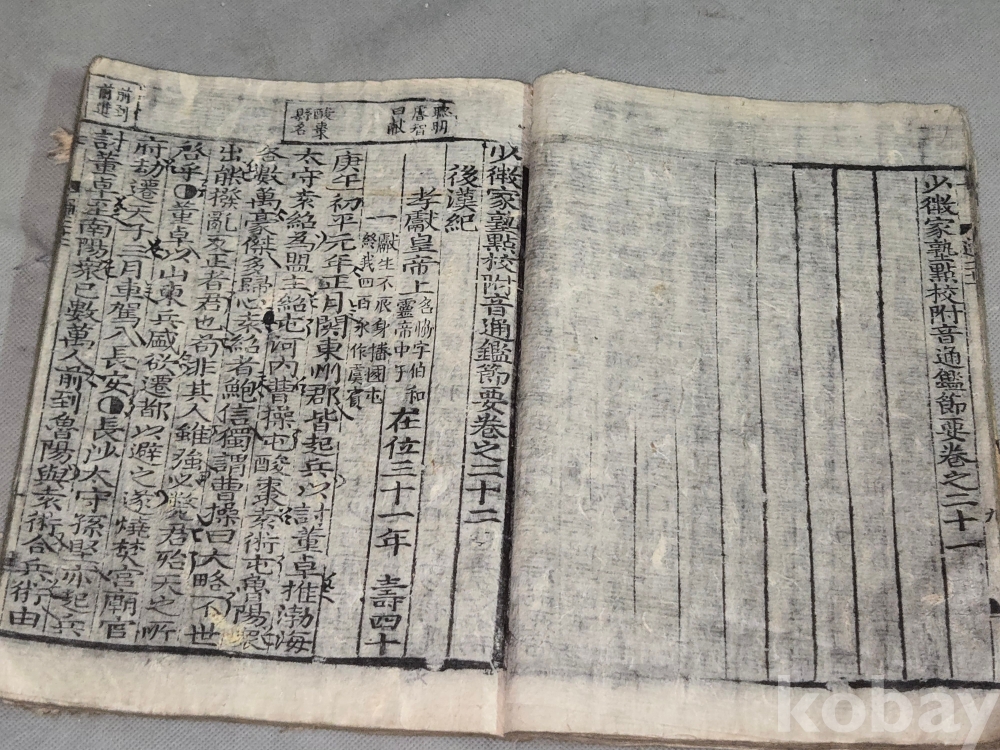 少微家塾點校附音通鑑節要卷之二十一
聰明
睿智
曰獻
酸棗
縣名
少微家塾點校附音通鑑節要卷之二十二
後漢紀
孝獻皇帝上 名協字伯和靈帝中子 在位三十一年 壽四十
一 獻生不辰身播國屯終我四百永作虞賓
庚午初平元年正月關東州郡皆起兵以討董卓推渤海
太守袁紹爲盟主紹屯河內曹操屯酸棗袁術屯魯陽衆
各數萬豪傑多歸心袁紹者鮑信獨謂曹操曰大略不世
出能撥亂反正者君也苟非其人雖強必斃君殆天之所
啓乎董卓以山東兵盛欲遷都以避之遂燒焚宮廟官
府劫遷天子三月車駕入長安長沙太守孫堅亦起兵
討董卓至南陽衆已數萬人前到魯陽與袁術合兵術由
前到
前進
kobay